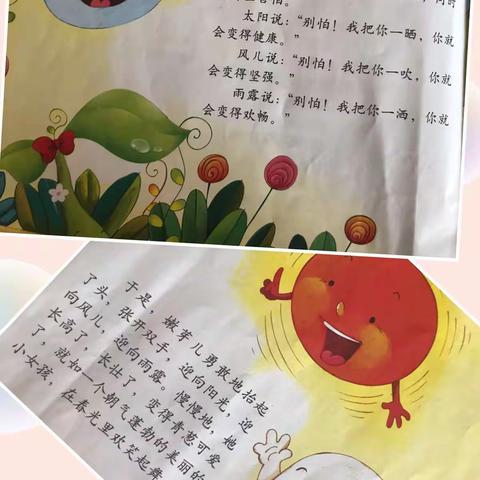 害怕。
太阳说：“别怕！我把你一晒，你就
会变得健康。”
风儿说：“别怕！我把你一吹，你就
会变得坚强。”
雨露说：“别怕！我把你一洒，你就
会变得欢畅。”
于是，嫩芽儿勇敢地抬起
了头，张开双手，迎向阳光，迎
向风儿，迎向雨露。慢慢地，她
长高了，长壮了，变得青葱可爱
了，就如一个朝气蓬勃的美丽的
小女孩，在春光里欢笑起舞